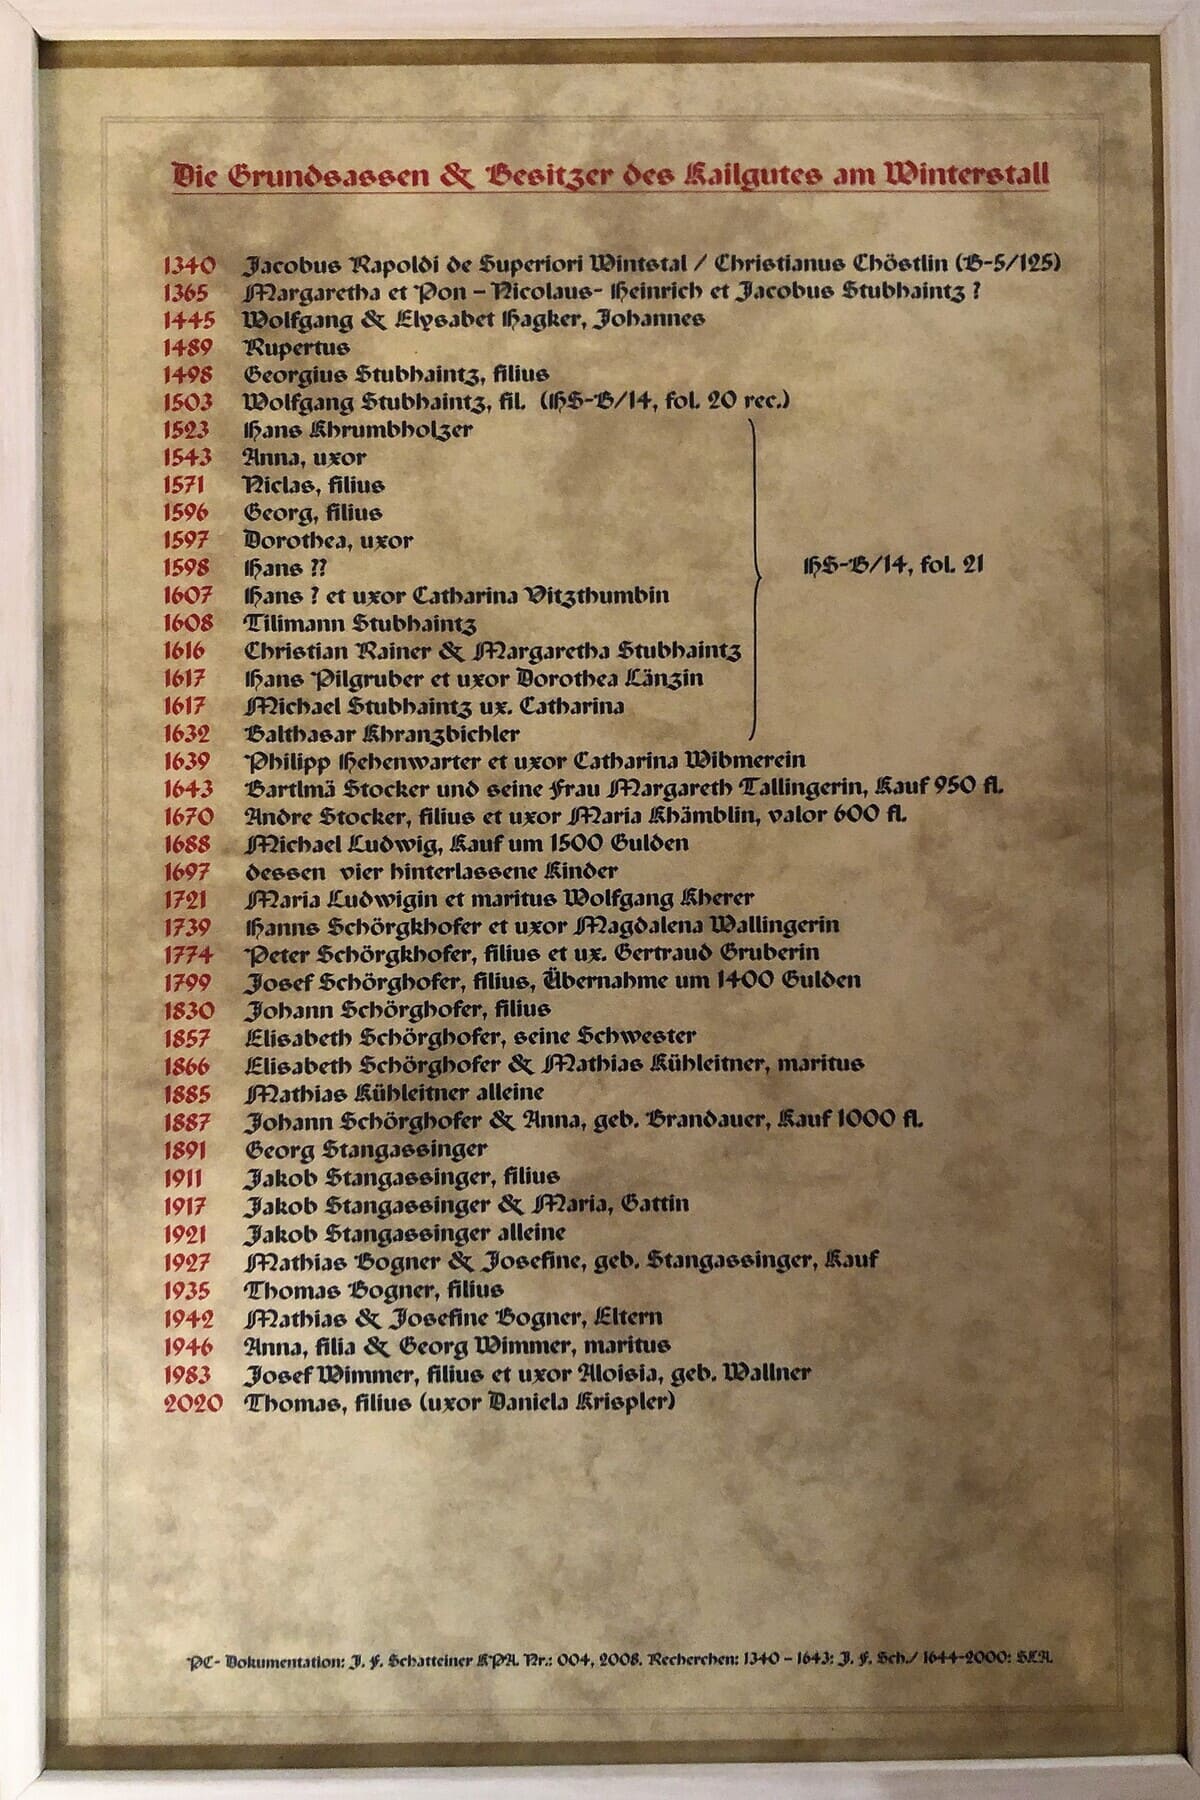 Die Grundsassen & Besitzer des Kailgutes am Winterstall
1340 Jacobus Rapoldi de Superiori Wintstal / Christianus Chöstlin (B-5/125)
1365 Margaretha et Pon – Nicolaus- Heinrich et Jacobus Stubhaintz ?
1445 Wolfgang & Elysabet Hagker, Johannes
1489 Rupertus
1498 Georgius Stubhaintz, filius
1503 Wolfgang Stubhaintz, fil. (HS-B/14, fol. 20 rec.)
1523 Hans Khrumbholzer
1543 Anna, uxor
1571 Niclas, filius
1596 Georg, filius
1597 Dorothea, uxor
1598 Hans ??
HS-B/14, fol. 21
1607 Hans ? et uxor Catharina Vitzthumbin
1608 Tilimann Stubhaintz
1616 Christian Rainer & Margaretha Stubhaintz
1617 Hans Pilgruber et uxor Dorothea Länzin
1617 Michael Stubhaintz ux. Catharina
1632 Balthasar Khranzbichler
1639 Philipp Hehenwarter et uxor Catharina Wibmerein
1643 Bartlmä Stocker und seine Frau Margareth Tallingerin, Kauf 950 fl.
1670 Andre Stocker, filius et uxor Maria Khämblin, valor 600 fl.
1688 Michael Ludwig, Kauf um 1500 Gulden
1697 dessen vier hinterlassene Kinder
1721 Maria Ludwigin et maritus Wolfgang Kherer
1739 Hanns Schörgkhofer et uxor Magdalena Wallingerin
1774 Peter Schörgkhofer, filius et ux. Gertraud Gruberin
1799 Josef Schörghofer, filius, Übernahme um 1400 Gulden
1830 Johann Schörghofer, filius
1857 Elisabeth Schörghofer, seine Schwester
1866 Elisabeth Schörghofer & Mathias Kühleitner, maritus
1885 Mathias Kühleitner alleine
1887 Johann Schörghofer & Anna, geb. Brandauer, Kauf 1000 fl.
1891 Georg Stangassinger
1911 Jakob Stangassinger, filius
1917 Jakob Stangassinger & Maria, Gattin
1921 Jakob Stangassinger alleine
1927 Mathias Bogner & Josefine, geb. Stangassinger, Kauf
1935 Thomas Bogner, filius
1942 Mathias & Josefine Bogner, Eltern
1946 Anna, filia & Georg Wimmer, maritus
1983 Josef Wimmer, filius et uxor Aloisia, geb. Wallner
2020 Thomas, filius (uxor Daniela Krispler)
PC- Dokumentation: J. F. Schatteiner KPA. Nr.: 004, 2008. Recherchen: 1340 – 1643: J. F. Sch./ 1644-2000: SLA.